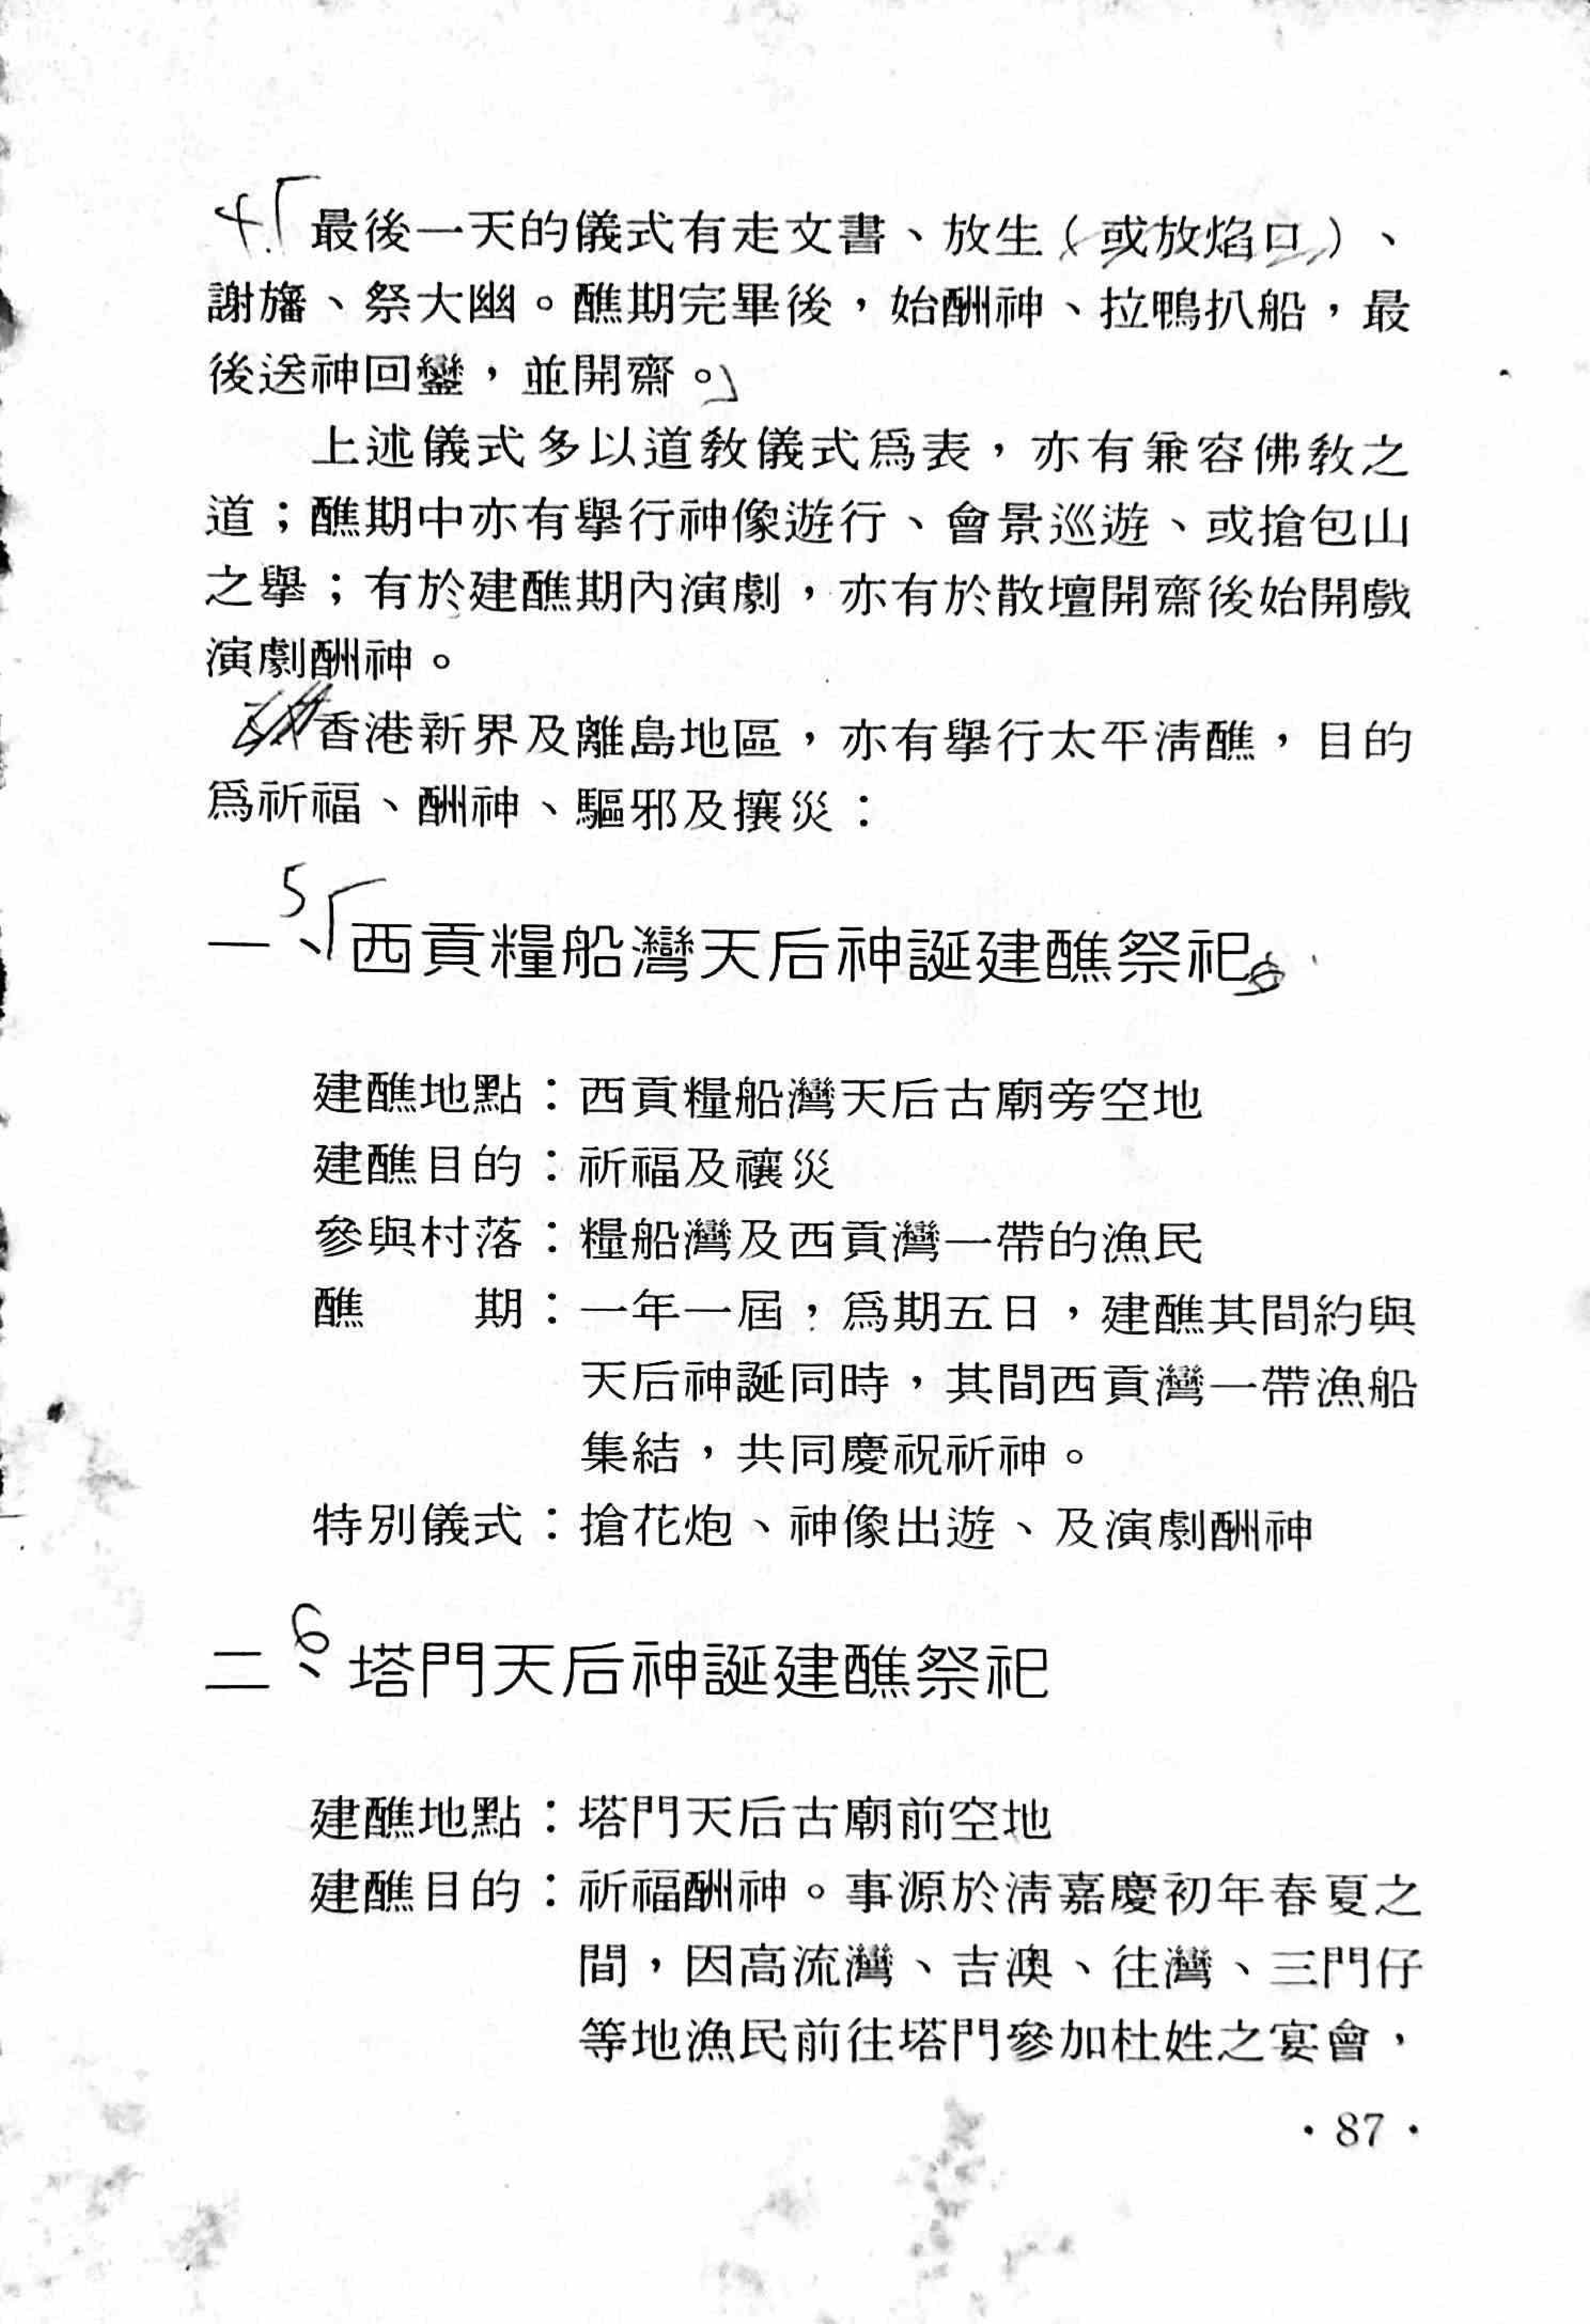 4.「最後一天的儀式有走文書、放生（或放焰口）、
謝旛、祭大幽。醮期完畢後，始酬神、拉鴨扒船，最
後送神回鑾，並開齋。」
上述儀式多以道教儀式爲表，亦有兼容佛教之
道；醮期中亦有舉行神像遊行、會景巡遊、或搶包山
之舉；有於建醮期內演劇，亦有於散壇開齋後始開戲
演劇酬神。
香港新界及離島地區，亦有舉行太平淸醮，目的
爲祈福、酬神、驅邪及攘災：
5「
一、西貢糧船灣天后神誕建醮祭祀
建醮地點：西貢糧船灣天后古廟旁空地
建醮目的：祈福及禳災
參與村落：糧船灣及西貢灣一帶的漁民
醮　　期：一年一屆，爲期五日，建醮其間約與
天后神誕同時，其間西貢灣一帶漁船
集結，共同慶祝祈神。
特別儀式：搶花炮、神像出遊、及演劇酬神
6
二、塔門天后神誕建醮祭祀
建醮地點：塔門天后古廟前空地
建醮目的：祈福酬神。事源於淸嘉慶初年春夏之
間，因高流灣、吉澳、往灣、三門仔
等地漁民前往塔門參加杜姓之宴會，
·87·